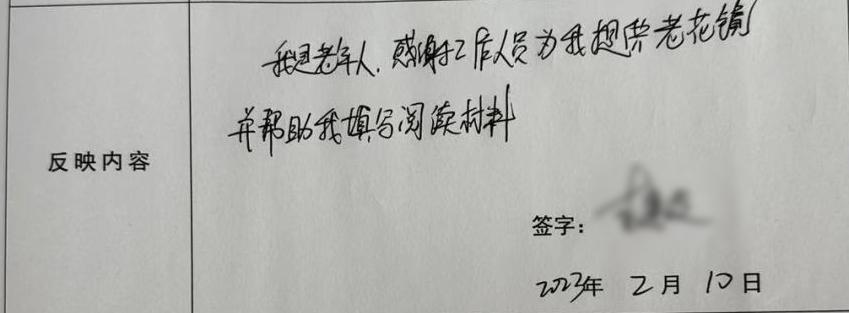 我是老年人，感谢工作人员为我提供老花镜
并帮助我填写阅读材料
反映内容
签字：
2023年 2月 10日